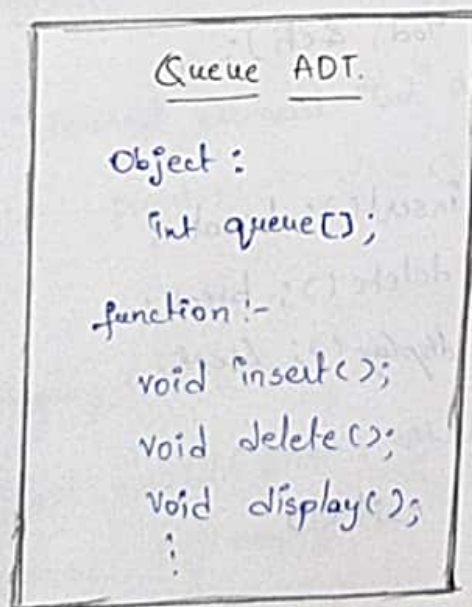 Queue ADT.
Object :
int queue[];
function :-
void insert();
void delete();
void display();
: